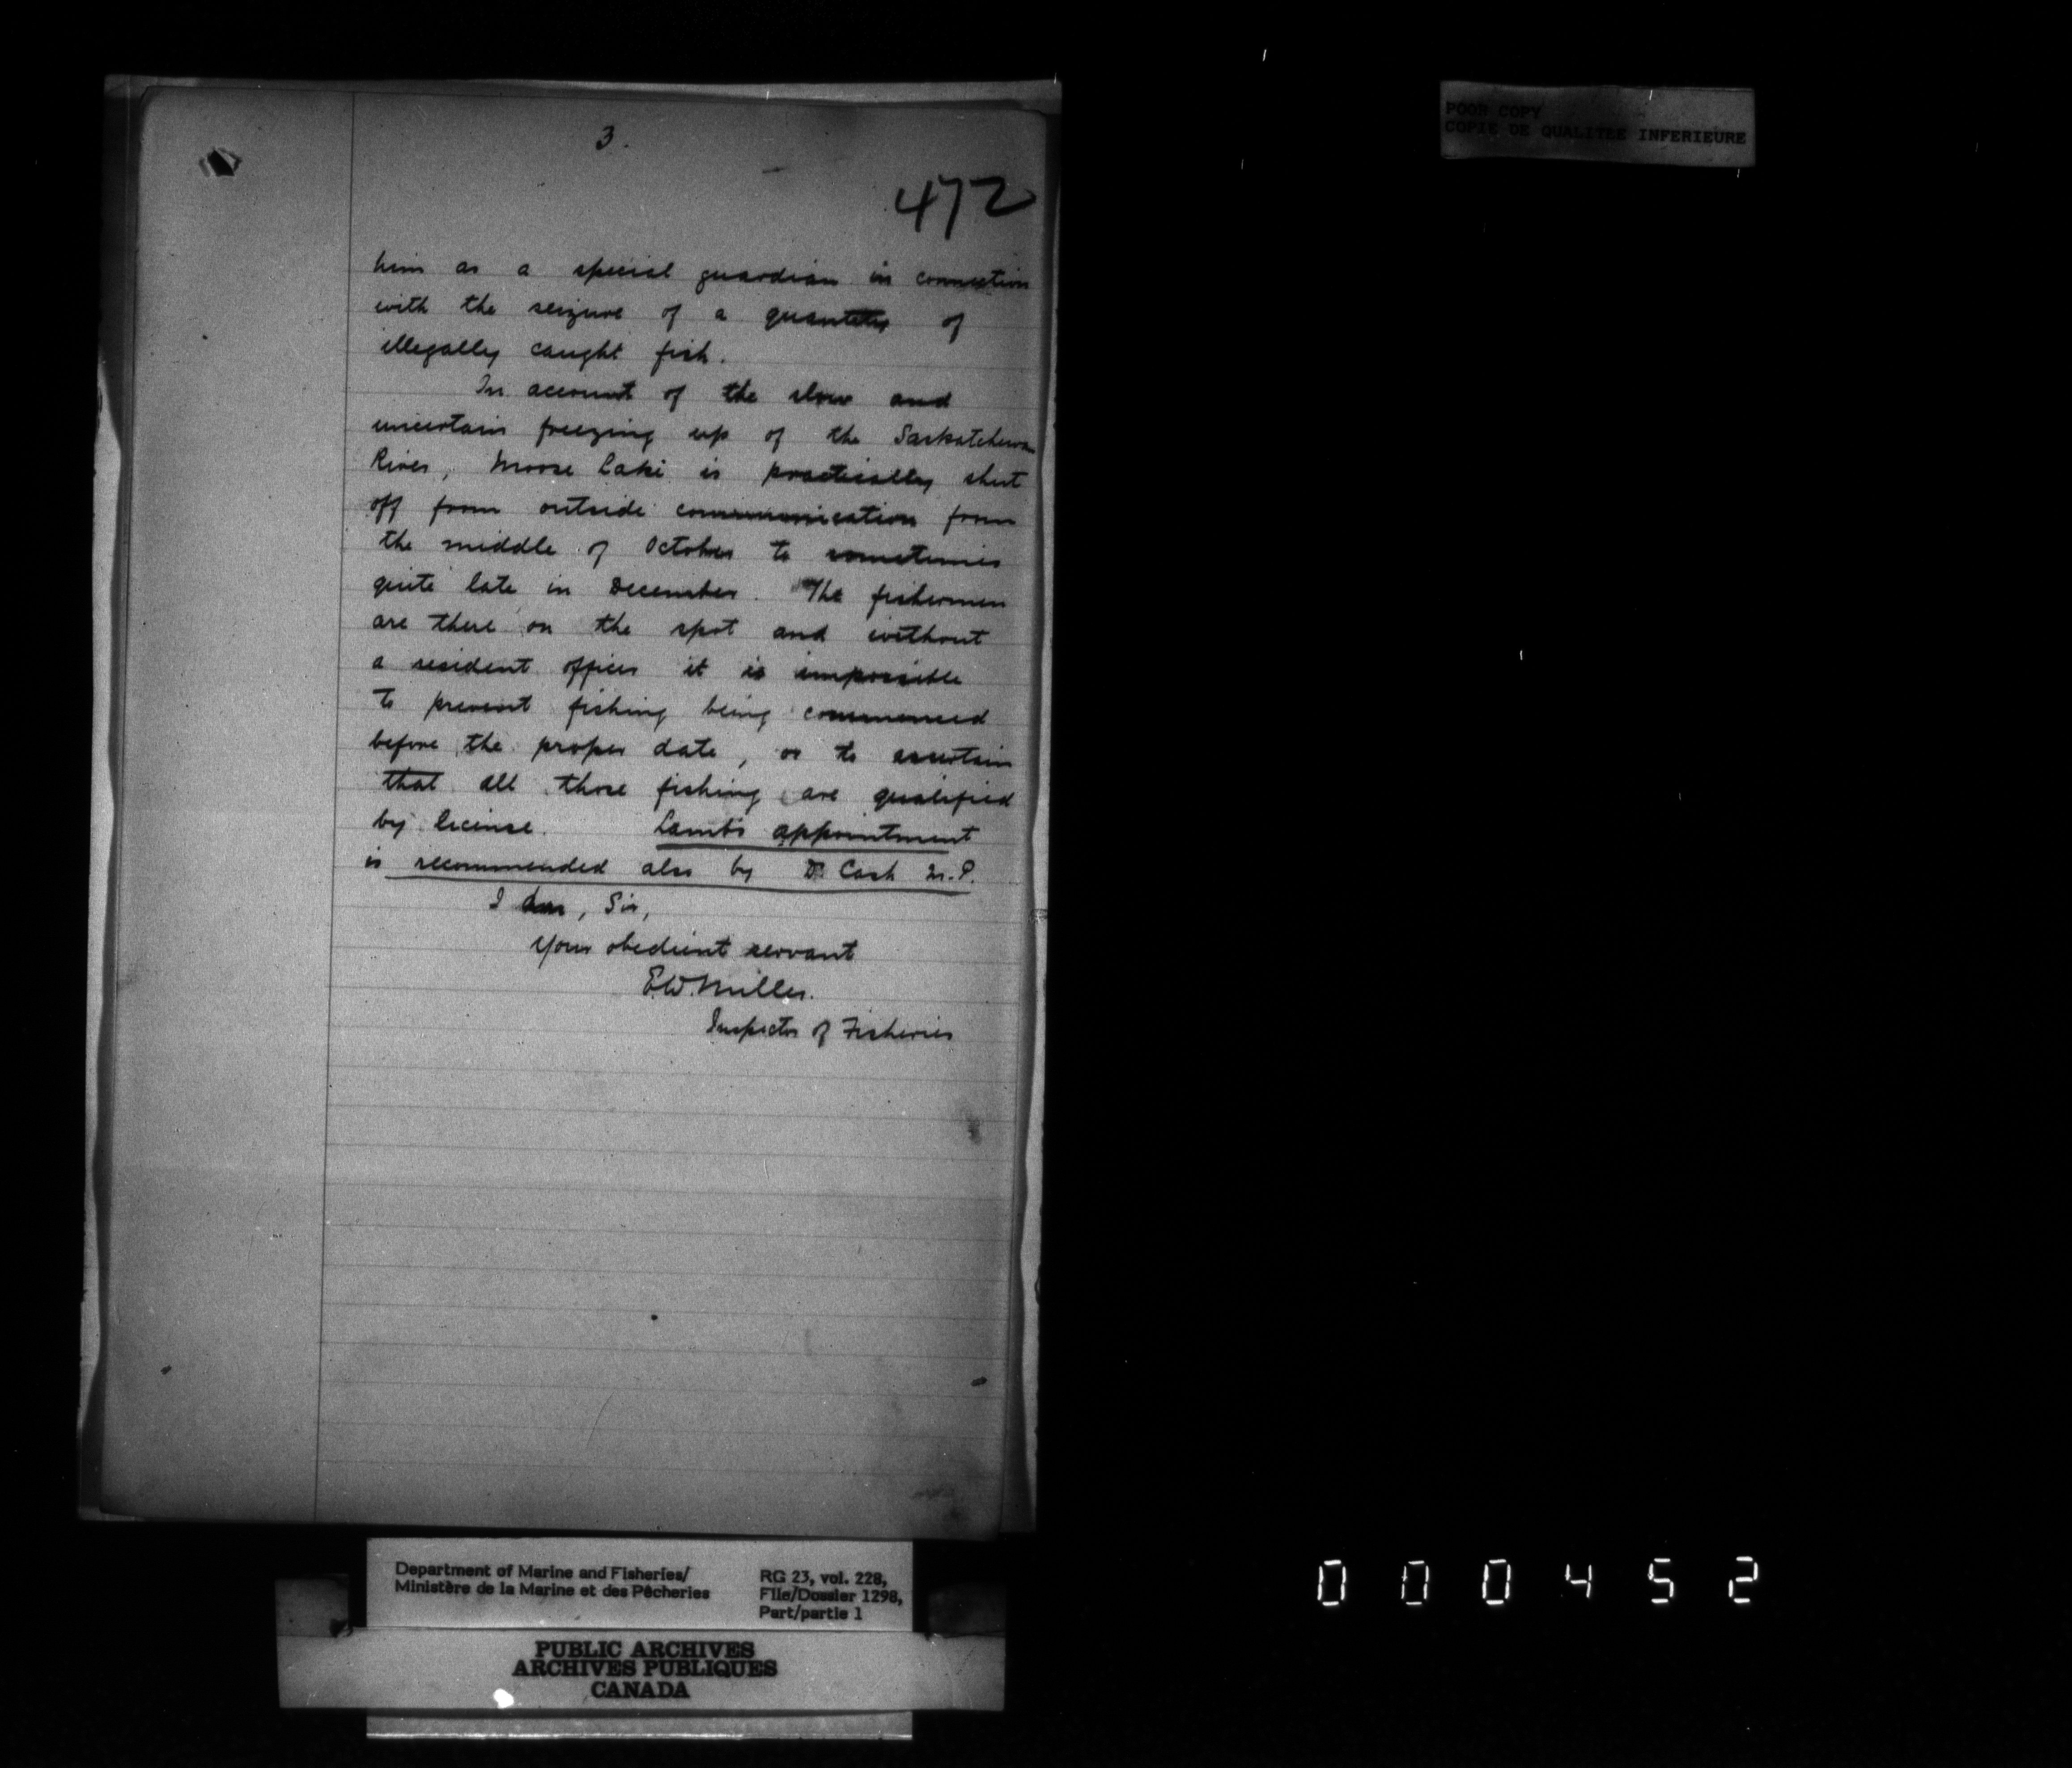 3.
472
him as a special guardian in connection
with the seizure of a quantity of
illegally caught fish.
On account of the slow and
uncertain freezing up of the Saskatchewan
River, Moose Lake is practically shut
off from outside communication from
the middle of October to sometimes
quite late in December. The fishermen
are there on the spot and without
a resident officer it is impossible
to prevent fishing being commenced
before the proper date, or to ascertain
that all those fishing are qualified
by license. Lamb's appointment
is recommended also by Dr Cash M.P.
I am, Sir,
Your obedient servant
E.W. Miller.
Inspector of Fisheries
POOR COPY
COPIE DE QUALITEE INFERIEURE
Department of Marine and Fisheries/
Ministère de la Marine et des Pêcheries
RG 23, vol. 228,
File/Dossier 1298,
Part/partie 1
PUBLIC ARCHIVES
ARCHIVES PUBLIQUES
CANADA
000452